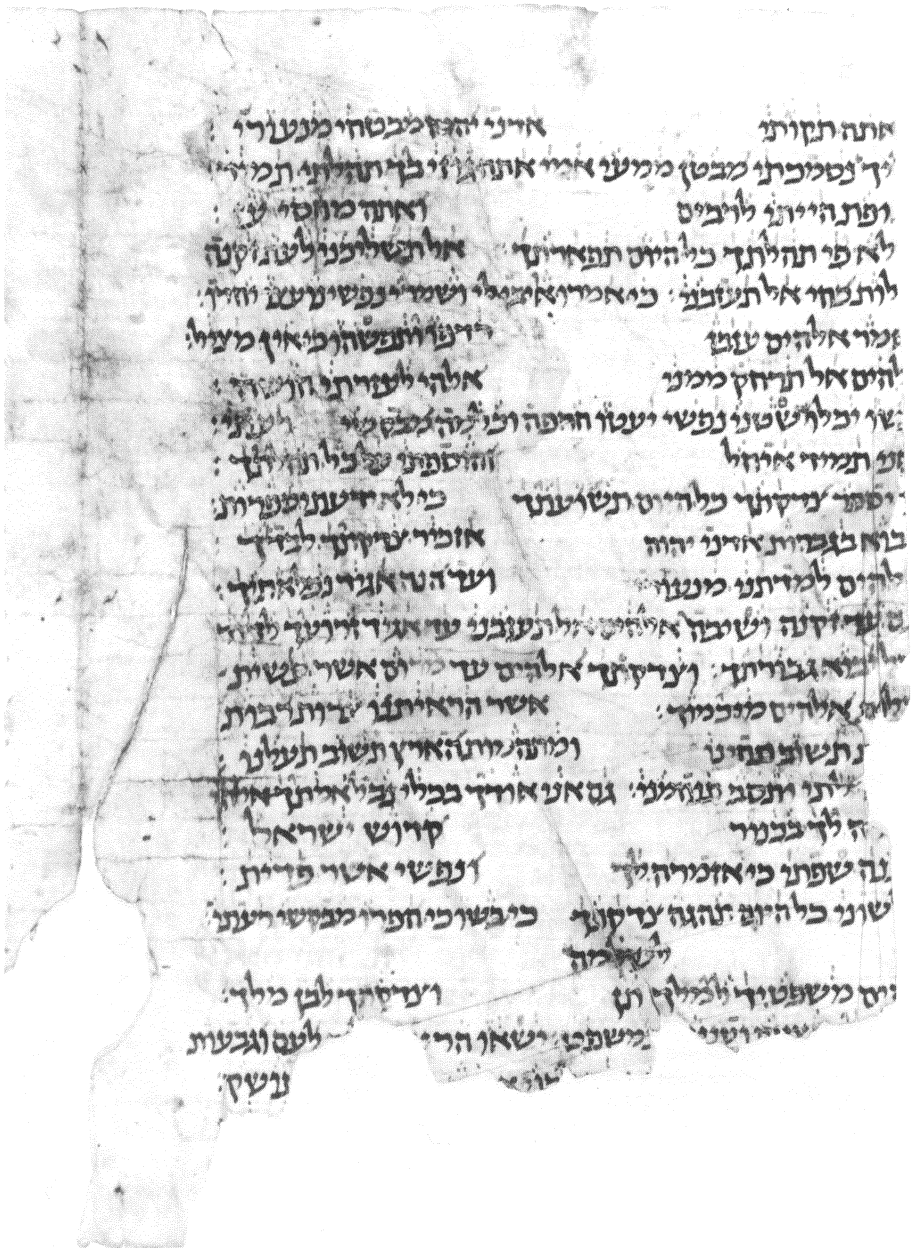 אתה תקותי אדני יהוה מבטחי מנעורי :
יך נסמכתי מבטן ממעי אמי אתה גוזי בך תהלתי תמיד
ופת הייתי לרבים ואתה מחסי עז
לא פי תהלתך כל היום תפארתך אל תשליכני לעת זקנה
לות כחי אל תעזבני : כי אמרו אויבי לי ושמרי נפשי נועצו יחדו :
אמר אלהים עזבו רדפו ותפשהו כי אין מציל :
להים אל תרחק ממני אלהי לעזרתי חושה :
שו יכלו שטני נפשי יעטו חרפה וכלמה מבקשי רעתי :
אני תמיד איחל והוספתי על כל תהלתך :
יספר צדקתך כל היום תשועתך כי לא ידעתי ספרות :
בוא בגברות אדני יהוה אזכיר צדקתך לבדך
להים למדתני מנעורי ועד הנה אגיד נפלאתיך :
ם עד זקנה ושיבה אלהים אל תעזבני עד אגיד זרועך לדור
לכל יבוא גבורתך : וצדקתך אלהים עד מרום אשר עשית
אלהים מי כמוך : אשר הראיתנו צרות רבות
תשוב תחינו ומתהמות הארץ תשוב תעלנו :
תי ותסב תנחמני : גם אני אודך בכלי נבל אמתך אלהי
ה לך בכנור קדוש ישראל :
ננה שפתי כי אזמרה לך ונפשי אשר פדית :
שוני כל היום תהגה צדקתך כי בשו כי חפרו מבקשי רעתי :
לשלמה
הים משפטיך למלך תן וצדקתך לבן מלך :
במשפט : ישאו הרי לעם וגבעות
עושק :